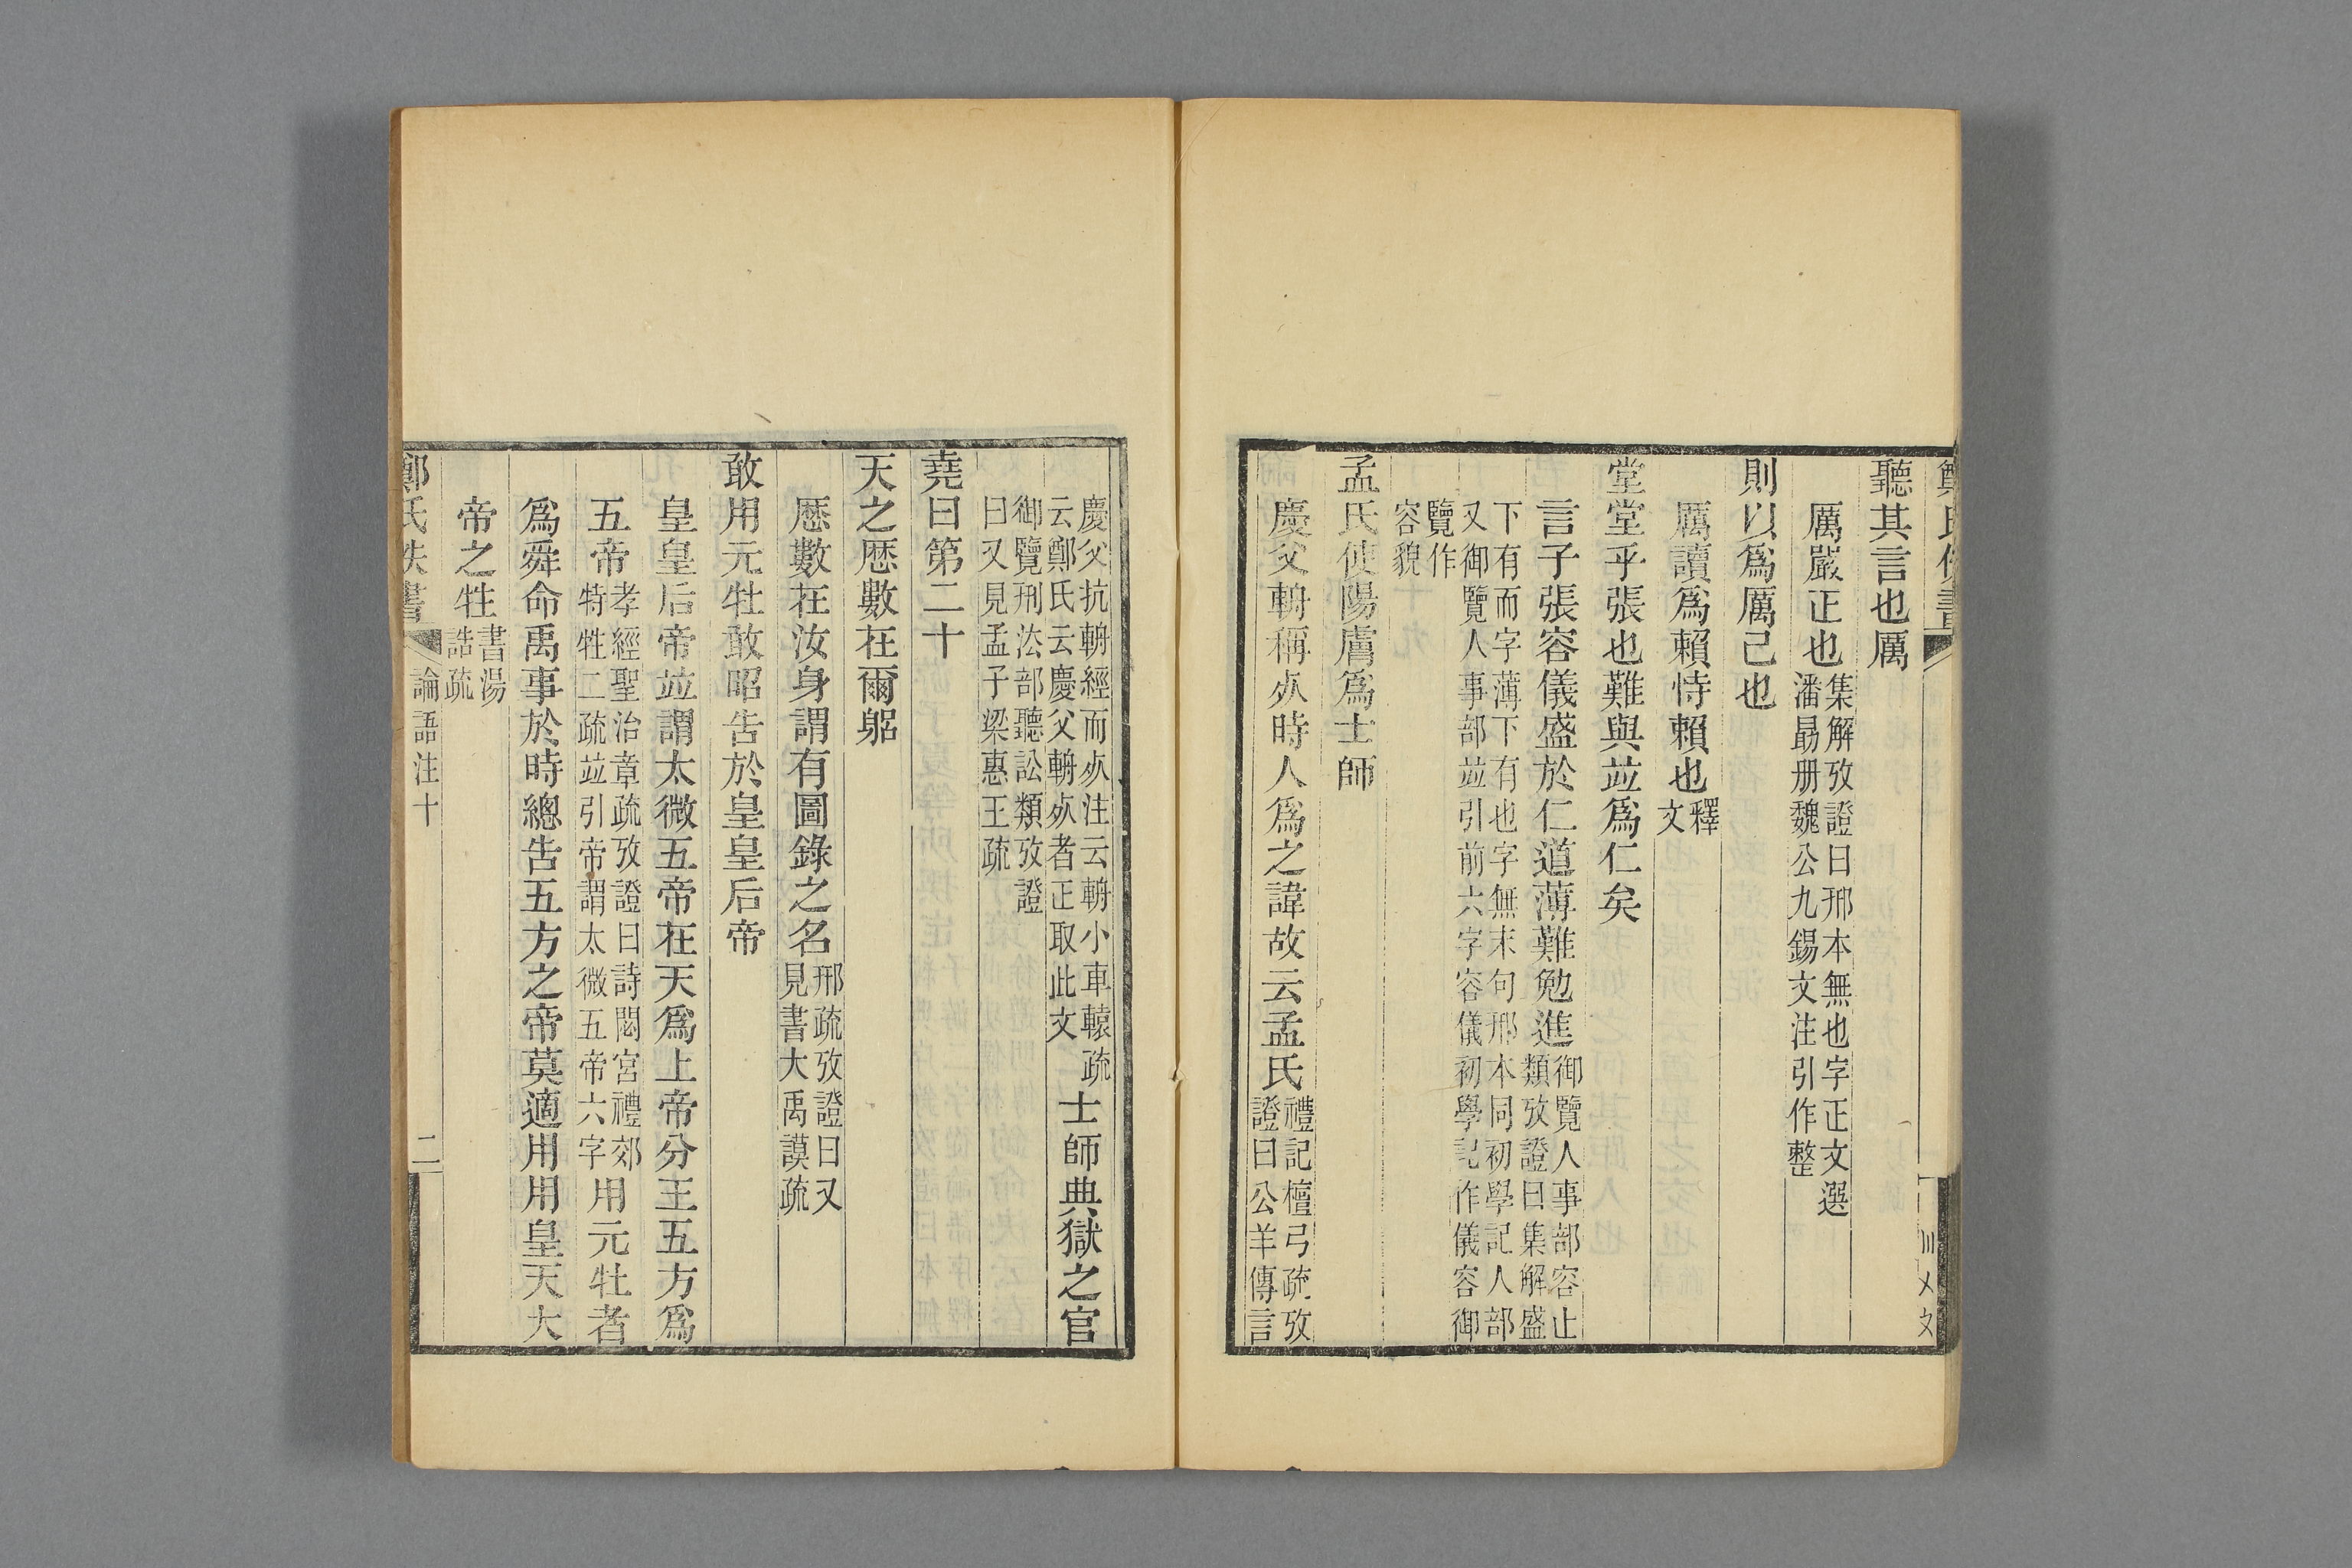 聽其言也厲
厲嚴正也集解攷證曰邢本無也字正文選
潘勗册魏公九錫文注引作整
則以爲厲己也
厲讀爲賴恃賴也釋
文
堂堂乎張也難與竝爲仁矣
言子張容儀盛於仁道薄難勉進御覽人事部容止
類攷證曰集解盛
下有而字薄下有也字無末句邢本同初學記人部
又御覽人事部竝引前六字容儀初學記作儀容御
覽作
容貌
孟氏使陽膚爲士師
慶父輈稱死時人爲之諱故云孟氏禮記檀弓疏攷
證曰公羊傳言
慶父抗輈經而死注云輈小車轅疏
云鄭氏云慶父輈死者正取此文士師典獄之官
御覽刑法部聽訟類攷證
曰又見孟子梁惠王疏
堯曰第二十
天之歷數在爾躬
歷數在汝身謂有圖錄之名邢疏攷證曰又
見書大禹謨疏
敢用元牡敢昭告於皇皇后帝
皇皇后帝竝謂太微五帝在天爲上帝分王五方爲
五帝孝經聖治章疏攷證曰詩閟宮禮郊
特牲二疏竝引帝謂太微五帝六字用元牡者
爲舜命禹事於時總告五方之帝莫適用用皇天大
帝之牲書湯
誥疏
鄭氏佚書
論語注十
二